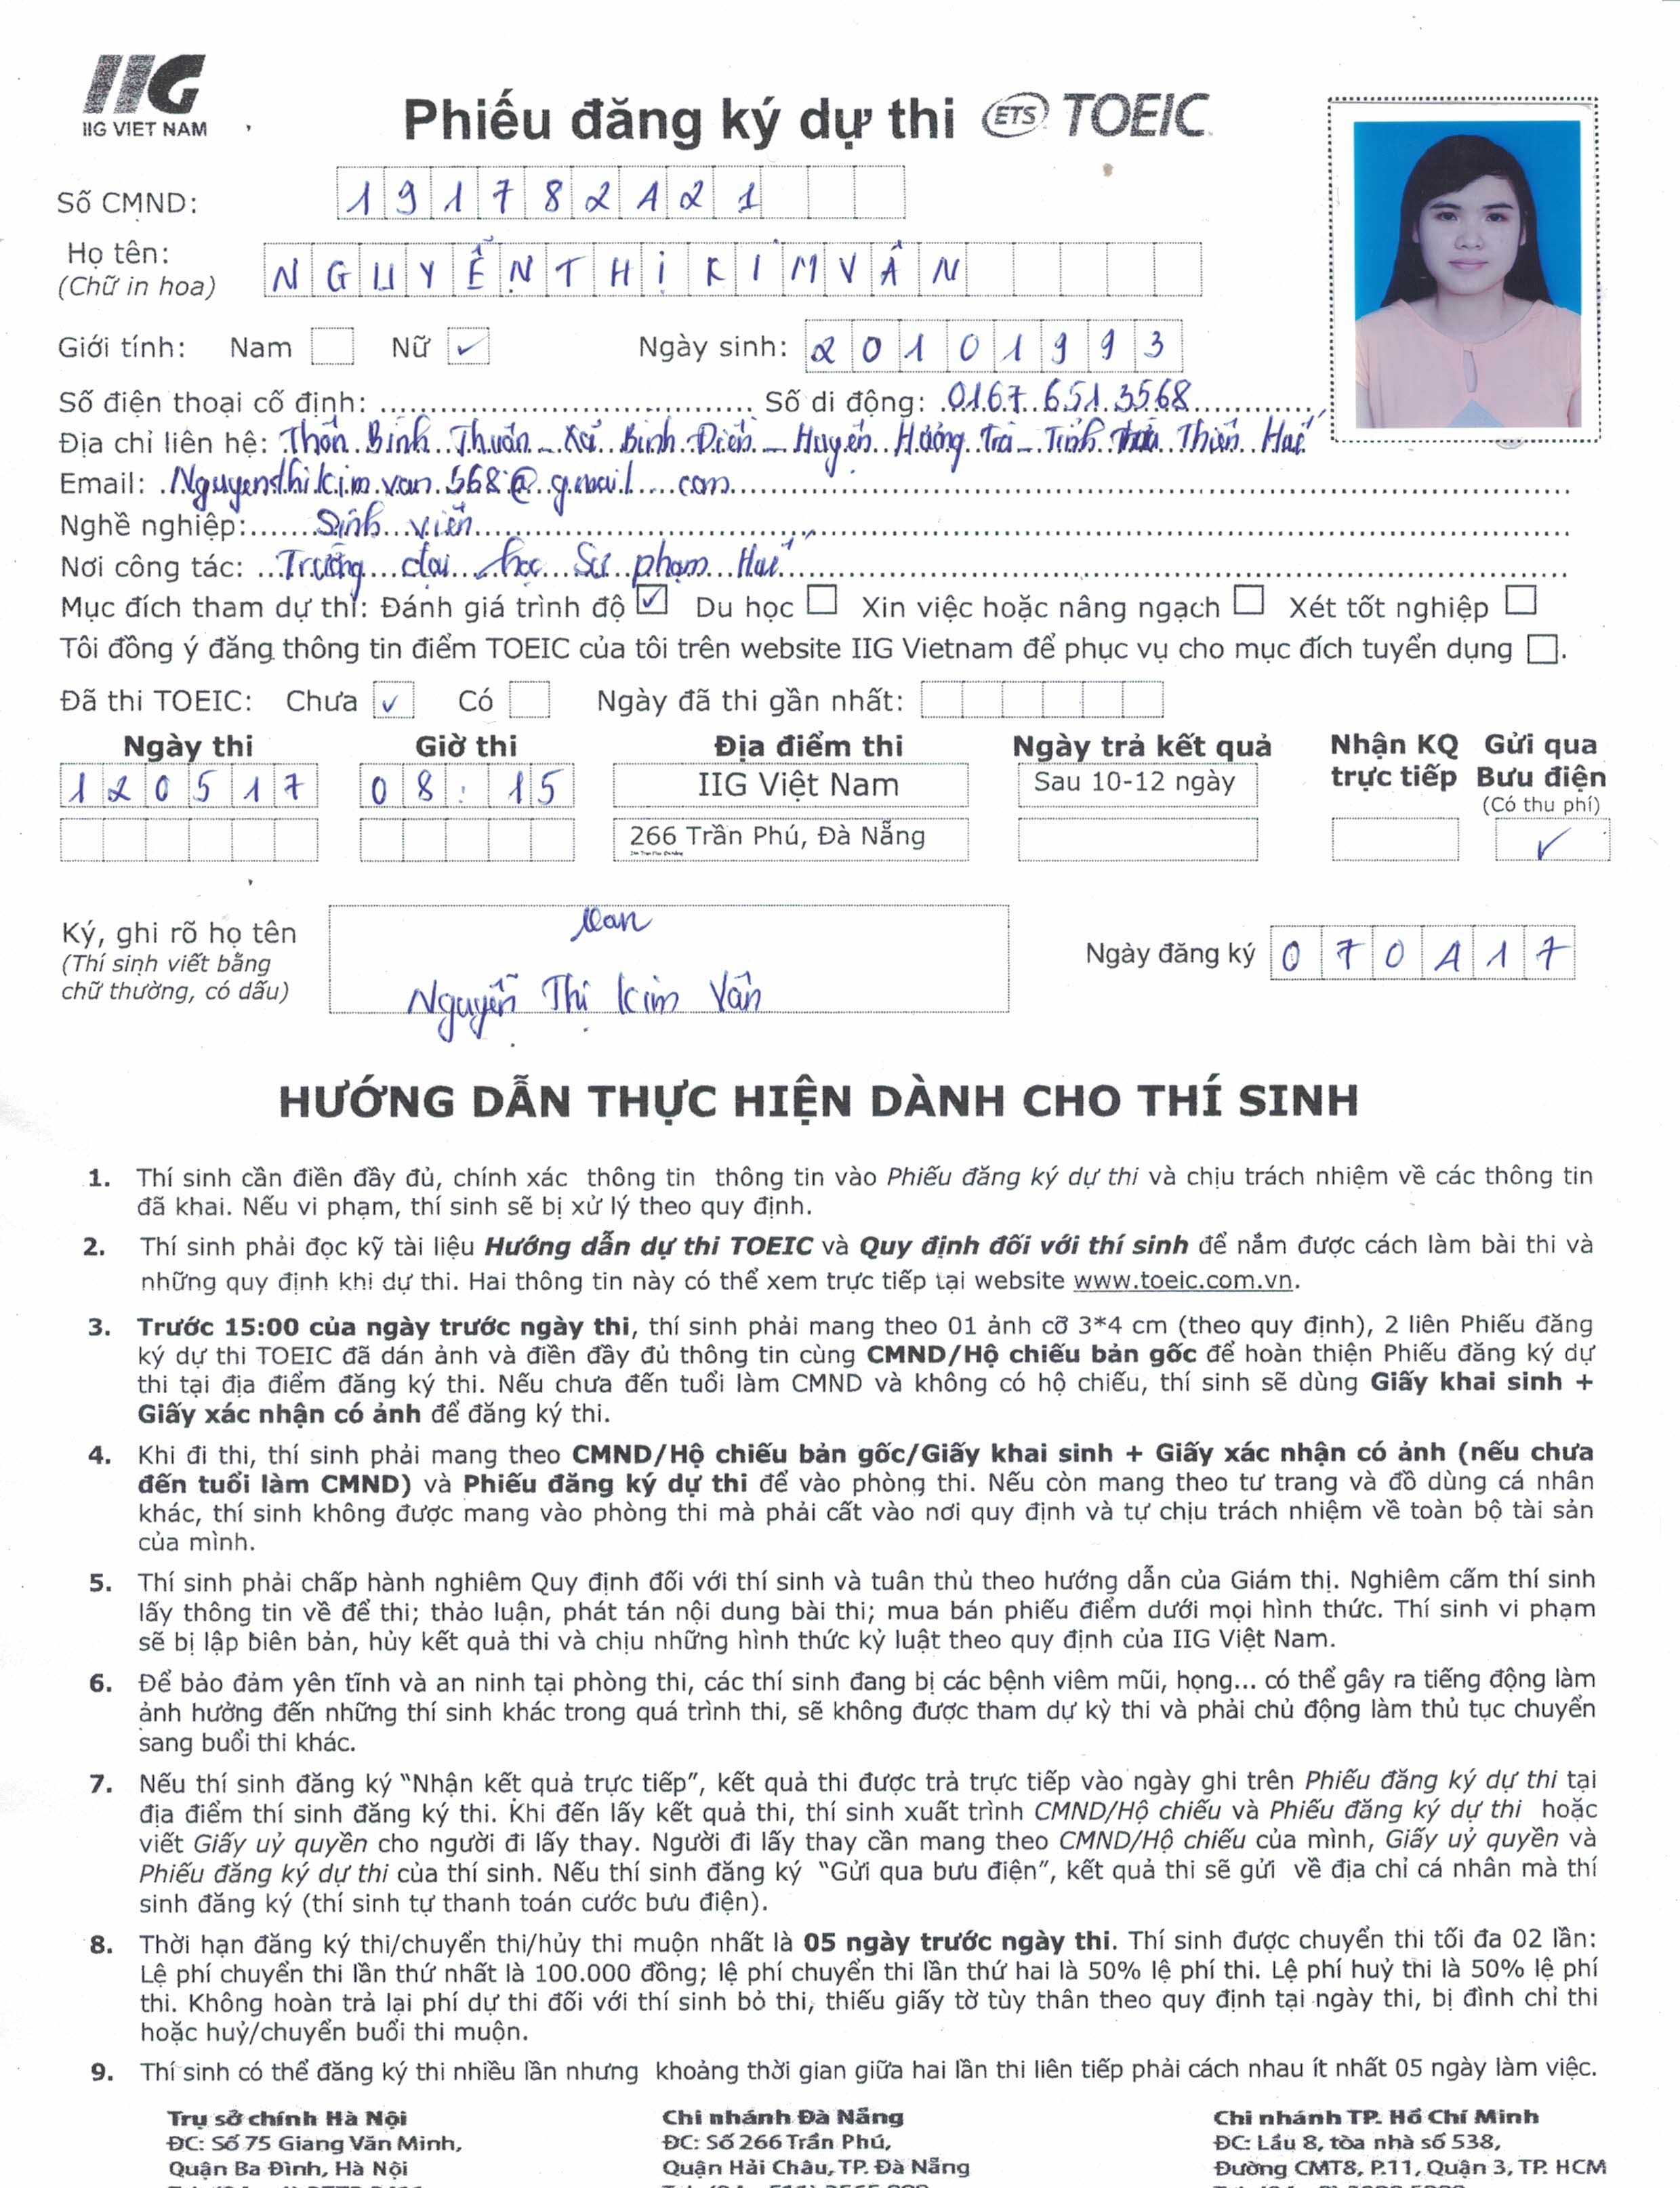 IIG
IIG VIET NAM
Phiếu đăng ký dự thi ETS TOEIC
Số CMND: 191782421
Họ tên: NGUYỄN THỊ KIM VÂN
(Chữ in hoa)
Giới tính: Nam Nữ ✓ Ngày sinh: 20101993
Số điện thoại cố định: Số di động: 0167 651 3568
Địa chỉ liên hệ: Thôn Bình Thuận - Xã Bình Điền - Huyện Hương Trà - Tỉnh Thừa Thiên Huế
Email: Nguyenthikimvan568@gmail.com
Nghề nghiệp: Sinh viên
Nơi công tác: Trường đại học Sư phạm Huế
Mục đích tham dự thi: Đánh giá trình độ ✓ Du học Xin việc hoặc nâng ngạch Xét tốt nghiệp
Tôi đồng ý đăng thông tin điểm TOEIC của tôi trên website IIG Vietnam để phục vụ cho mục đích tuyển dụng .
Đã thi TOEIC: Chưa ✓ Có Ngày đã thi gần nhất:
Ngày thi Giờ thi Địa điểm thi Ngày trả kết quả Nhận KQ trực tiếp Gửi qua Bưu điện (Có thu phí)
120517 08:15 IIG Việt Nam Sau 10-12 ngày
266 Trần Phú, Đà Nẵng ✓
Ký, ghi rõ họ tên
(Thí sinh viết bằng chữ thường, có dấu)
Van
Nguyễn Thị Kim Vân
Ngày đăng ký 070417
HƯỚNG DẪN THỰC HIỆN DÀNH CHO THÍ SINH
1. Thí sinh cần điền đầy đủ, chính xác thông tin thông tin vào Phiếu đăng ký dự thi và chịu trách nhiệm về các thông tin
đã khai. Nếu vi phạm, thí sinh sẽ bị xử lý theo quy định.
2. Thí sinh phải đọc kỹ tài liệu Hướng dẫn dự thi TOEIC và Quy định đối với thí sinh để nắm được cách làm bài thi và
những quy định khi dự thi. Hai thông tin này có thể xem trực tiếp tại website www.toeic.com.vn.
3. Trước 15:00 của ngày trước ngày thi, thí sinh phải mang theo 01 ảnh cỡ 3*4 cm (theo quy định), 2 liên Phiếu đăng
ký dự thi TOEIC đã dán ảnh và điền đầy đủ thông tin cùng CMND/Hộ chiếu bản gốc để hoàn thiện Phiếu đăng ký dự
thi tại địa điểm đăng ký thi. Nếu chưa đến tuổi làm CMND và không có hộ chiếu, thí sinh sẽ dùng Giấy khai sinh +
Giấy xác nhận có ảnh để đăng ký thi.
4. Khi đi thi, thí sinh phải mang theo CMND/Hộ chiếu bản gốc/Giấy khai sinh + Giấy xác nhận có ảnh (nếu chưa
đến tuổi làm CMND) và Phiếu đăng ký dự thi để vào phòng thi. Nếu còn mang theo tư trang và đồ dùng cá nhân
khác, thí sinh không được mang vào phòng thi mà phải cất vào nơi quy định và tự chịu trách nhiệm về toàn bộ tài sản
của mình.
5. Thí sinh phải chấp hành nghiêm Quy định đối với thí sinh và tuân thủ theo hướng dẫn của Giám thị. Nghiêm cấm thí sinh
lấy thông tin về đề thi; thảo luận, phát tán nội dung bài thi; mua bán phiếu điểm dưới mọi hình thức. Thí sinh vi phạm
sẽ bị lập biên bản, hủy kết quả thi và chịu những hình thức kỷ luật theo quy định của IIG Việt Nam.
6. Để bảo đảm yên tĩnh và an ninh tại phòng thi, các thí sinh đang bị các bệnh viêm mũi, họng... có thể gây ra tiếng động làm
ảnh hưởng đến những thí sinh khác trong quá trình thi, sẽ không được tham dự kỳ thi và phải chủ động làm thủ tục chuyển
sang buổi thi khác.
7. Nếu thí sinh đăng ký “Nhận kết quả trực tiếp”, kết quả thi được trả trực tiếp vào ngày ghi trên Phiếu đăng ký dự thi tại
địa điểm thí sinh đăng ký thi. Khi đến lấy kết quả thi, thí sinh xuất trình CMND/Hộ chiếu và Phiếu đăng ký dự thi hoặc
viết Giấy uỷ quyền cho người đi lấy thay. Người đi lấy thay cần mang theo CMND/Hộ chiếu của mình, Giấy uỷ quyền và
Phiếu đăng ký dự thi của thí sinh. Nếu thí sinh đăng ký “Gửi qua bưu điện”, kết quả thi sẽ gửi về địa chỉ cá nhân mà thí
sinh đăng ký (thí sinh tự thanh toán cước bưu điện).
8. Thời hạn đăng ký thi/chuyển thi/hủy thi muộn nhất là 05 ngày trước ngày thi. Thí sinh được chuyển thi tối đa 02 lần:
Lệ phí chuyển thi lần thứ nhất là 100.000 đồng; lệ phí chuyển thi lần thứ hai là 50% lệ phí thi. Lệ phí huỷ thi là 50% lệ phí
thi. Không hoàn trả lại phí dự thi đối với thí sinh bỏ thi, thiếu giấy tờ tùy thân theo quy định tại ngày thi, bị đình chỉ thi
hoặc huỷ/chuyển buổi thi muộn.
9. Thí sinh có thể đăng ký thi nhiều lần nhưng khoảng thời gian giữa hai lần thi liên tiếp phải cách nhau ít nhất 05 ngày làm việc.
Trụ sở chính Hà Nội Chi nhánh Đà Nẵng Chi nhánh TP. Hồ Chí Minh
ĐC: Số 75 Giang Văn Minh, ĐC: Số 266 Trần Phú, ĐC: Lầu 8, tòa nhà số 538,
Quận Ba Đình, Hà Nội Quận Hải Châu, TP. Đà Nẵng Đường CMT8, P.11, Quận 3, TP. HCM